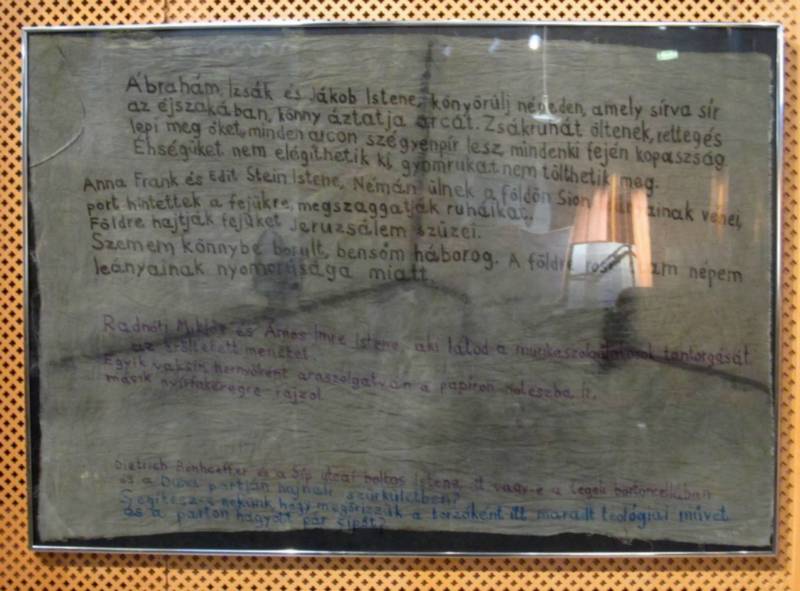 Ábrahám, Izsák és Jákob Istene, könyörülj népeden, amely sírva sír
az éjszakában, könny áztatja arcát. Zsákruhát öltenek, rettegés
lepi meg őket, minden arcon szégyenpír lesz, mindenki fején kopaszság
Éhségüket nem elégíthetik ki, gyomrukat nem tölthetik meg.
Anna Frank és Edit Stein Istene, Némán ülnek a földön Sion vénei,
port hintettek a fejükre, megszaggatják ruháikat.
Földre hajtják fejüket Jeruzsálem szüzei.
Szemem könnybe borult, bensőm háborog. A földre népem
leányainak nyomorúsága miatt
Radnóti Miklós és Ámos Imre Istene, aki látod a munkaszolgálatosok tántorgását
az erőltetett menetet
Egyik vaksin, hernyóként araszolgatván a papiron noteszba ír,
másik nyírfakéregre rajzol
Dietrich Bonhoeffer és a Síp utcai boltos Istene, itt vagy-e a tegeli börtöncellában
és a Duna partján hajnali szürkületben?
Segítesz-e nekünk, hogy megőrizzük a torzóként itt maradt teológiai művet
és a parton hagyott pár cipőt?